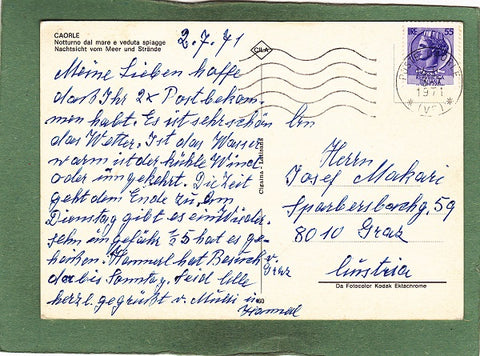 CAORLE
Notturno dal mare e veduta spiagge
Nachtsicht vom Meer und Strände
2.7.71
CILA
LIRE 55
1971
Meine Lieben hoffe
das Ihr 2x Post bekom-
men habt. Es ist sehr schön
das Wetter. Ist das Wasser
warm ist der kühle Wind
oder umgekehrt. Die Zeit
geht dem Ende zu. Am
Dienstag gibt es ein Wieder-
sehn ungefähr 1/2 5 hat es ge-
heißen. Hannerl hat Besuch v.
Graz
da bis Sonntag. Seid alle
herzl. gegrüßt v. Mutti u.
Hannerl
An
Herrn
Josef Makari
Sparbersbachg. 59
8010 Graz
Austria
Da Fotocolor Kodak Ektachrome